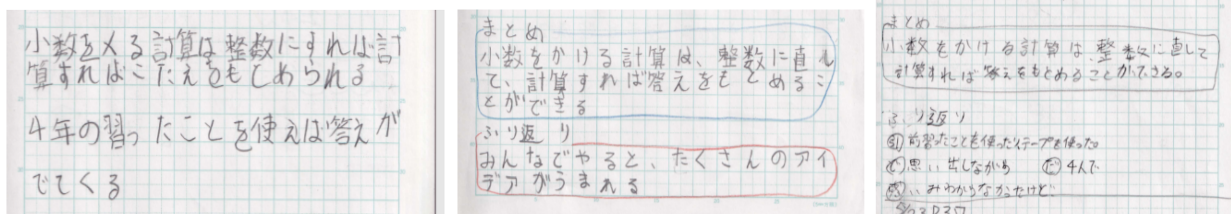 小数を×る計算は整数にすれば計
算すればこたえをもとめられる
4年の習ったことを使えば答えが
でてくる
まとめ
小数をかける計算は、整数に直し
て、計算すれば答えをもとめるこ
とができる
ふり返り
みんなでやると、たくさんのアイ
デアがうまれる
まとめ
小数をかける計算は、整数に直して
計算すれば答えをもとめることができる。
ふり返り
前習ったことを使ったりテープを使った。
思い出しながら 4人で
いみわからなかったけど